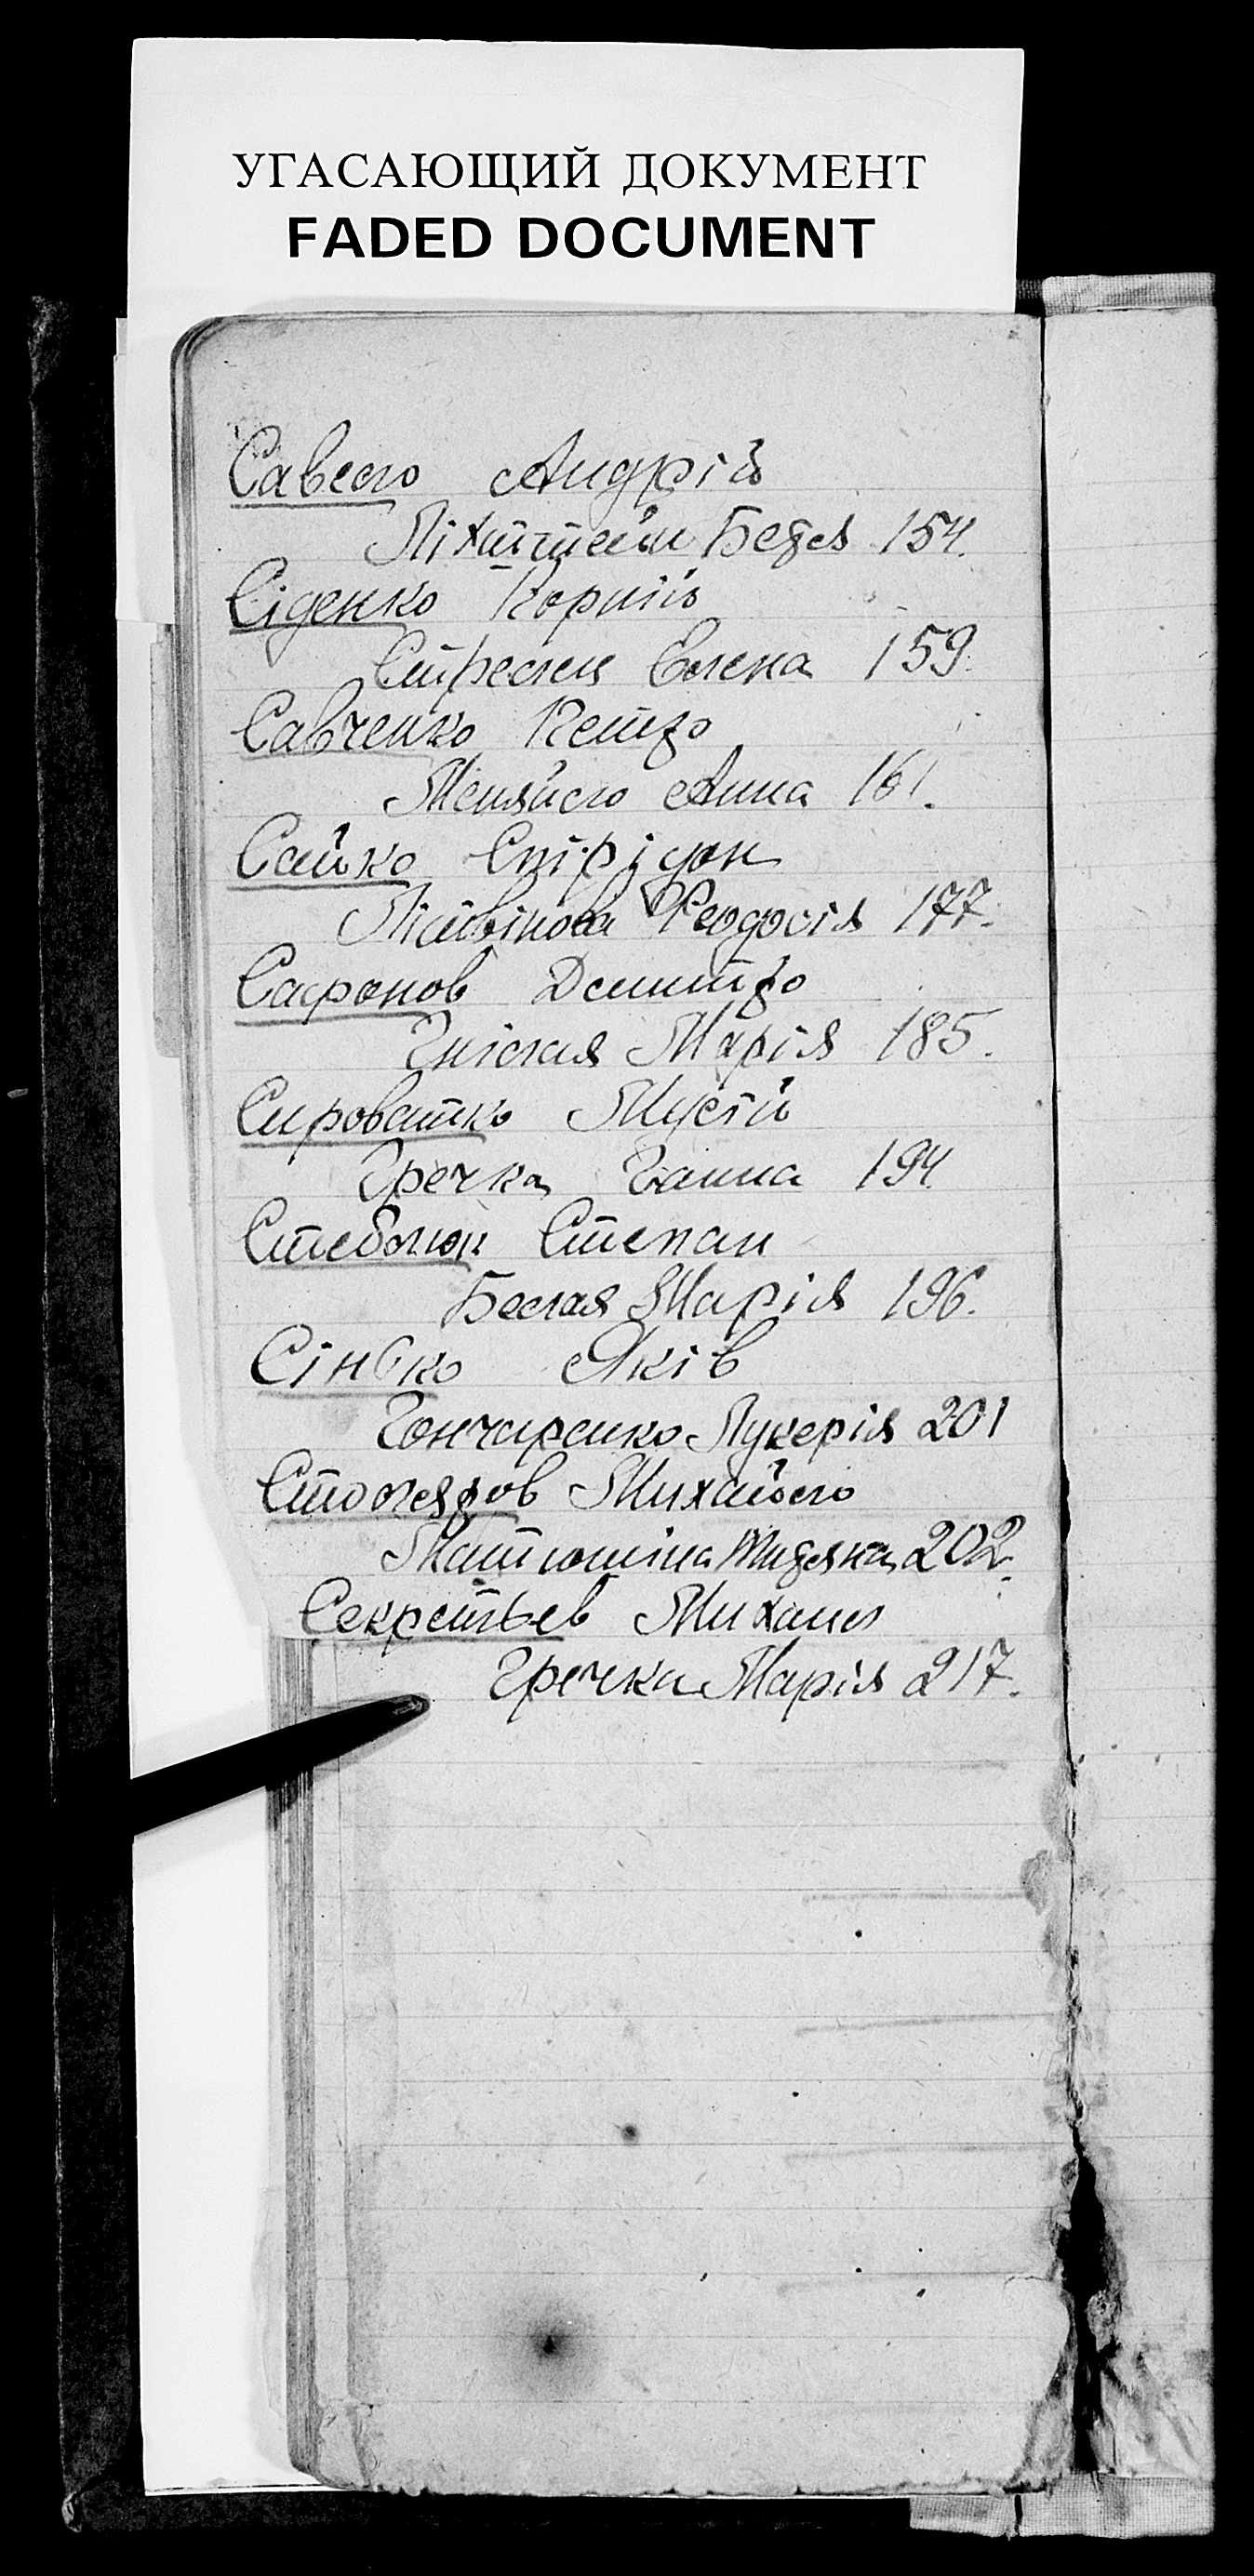 УГАСАЮЩИЙ ДОКУМЕНТ
FADED DOCUMENT
Савело Андрій
Ліхтштейн 154.
Сіденко Корній
Стрелец Елена 159.
Савченко Петро
Меняйло Анна 161.
Сайко Спірідон
Літвінова Феодосія 177.
Сафонов Дмитро
Гнілая Марія 185.
Сироватко Мусій
Гречка Ганна 194
Степан
Белая Марія 196.
Сінько Яків
Гончаренко Лукерія 201
Михайло
Матюшіна 202.
Секретьев Михаил
Гречка Марія 217.